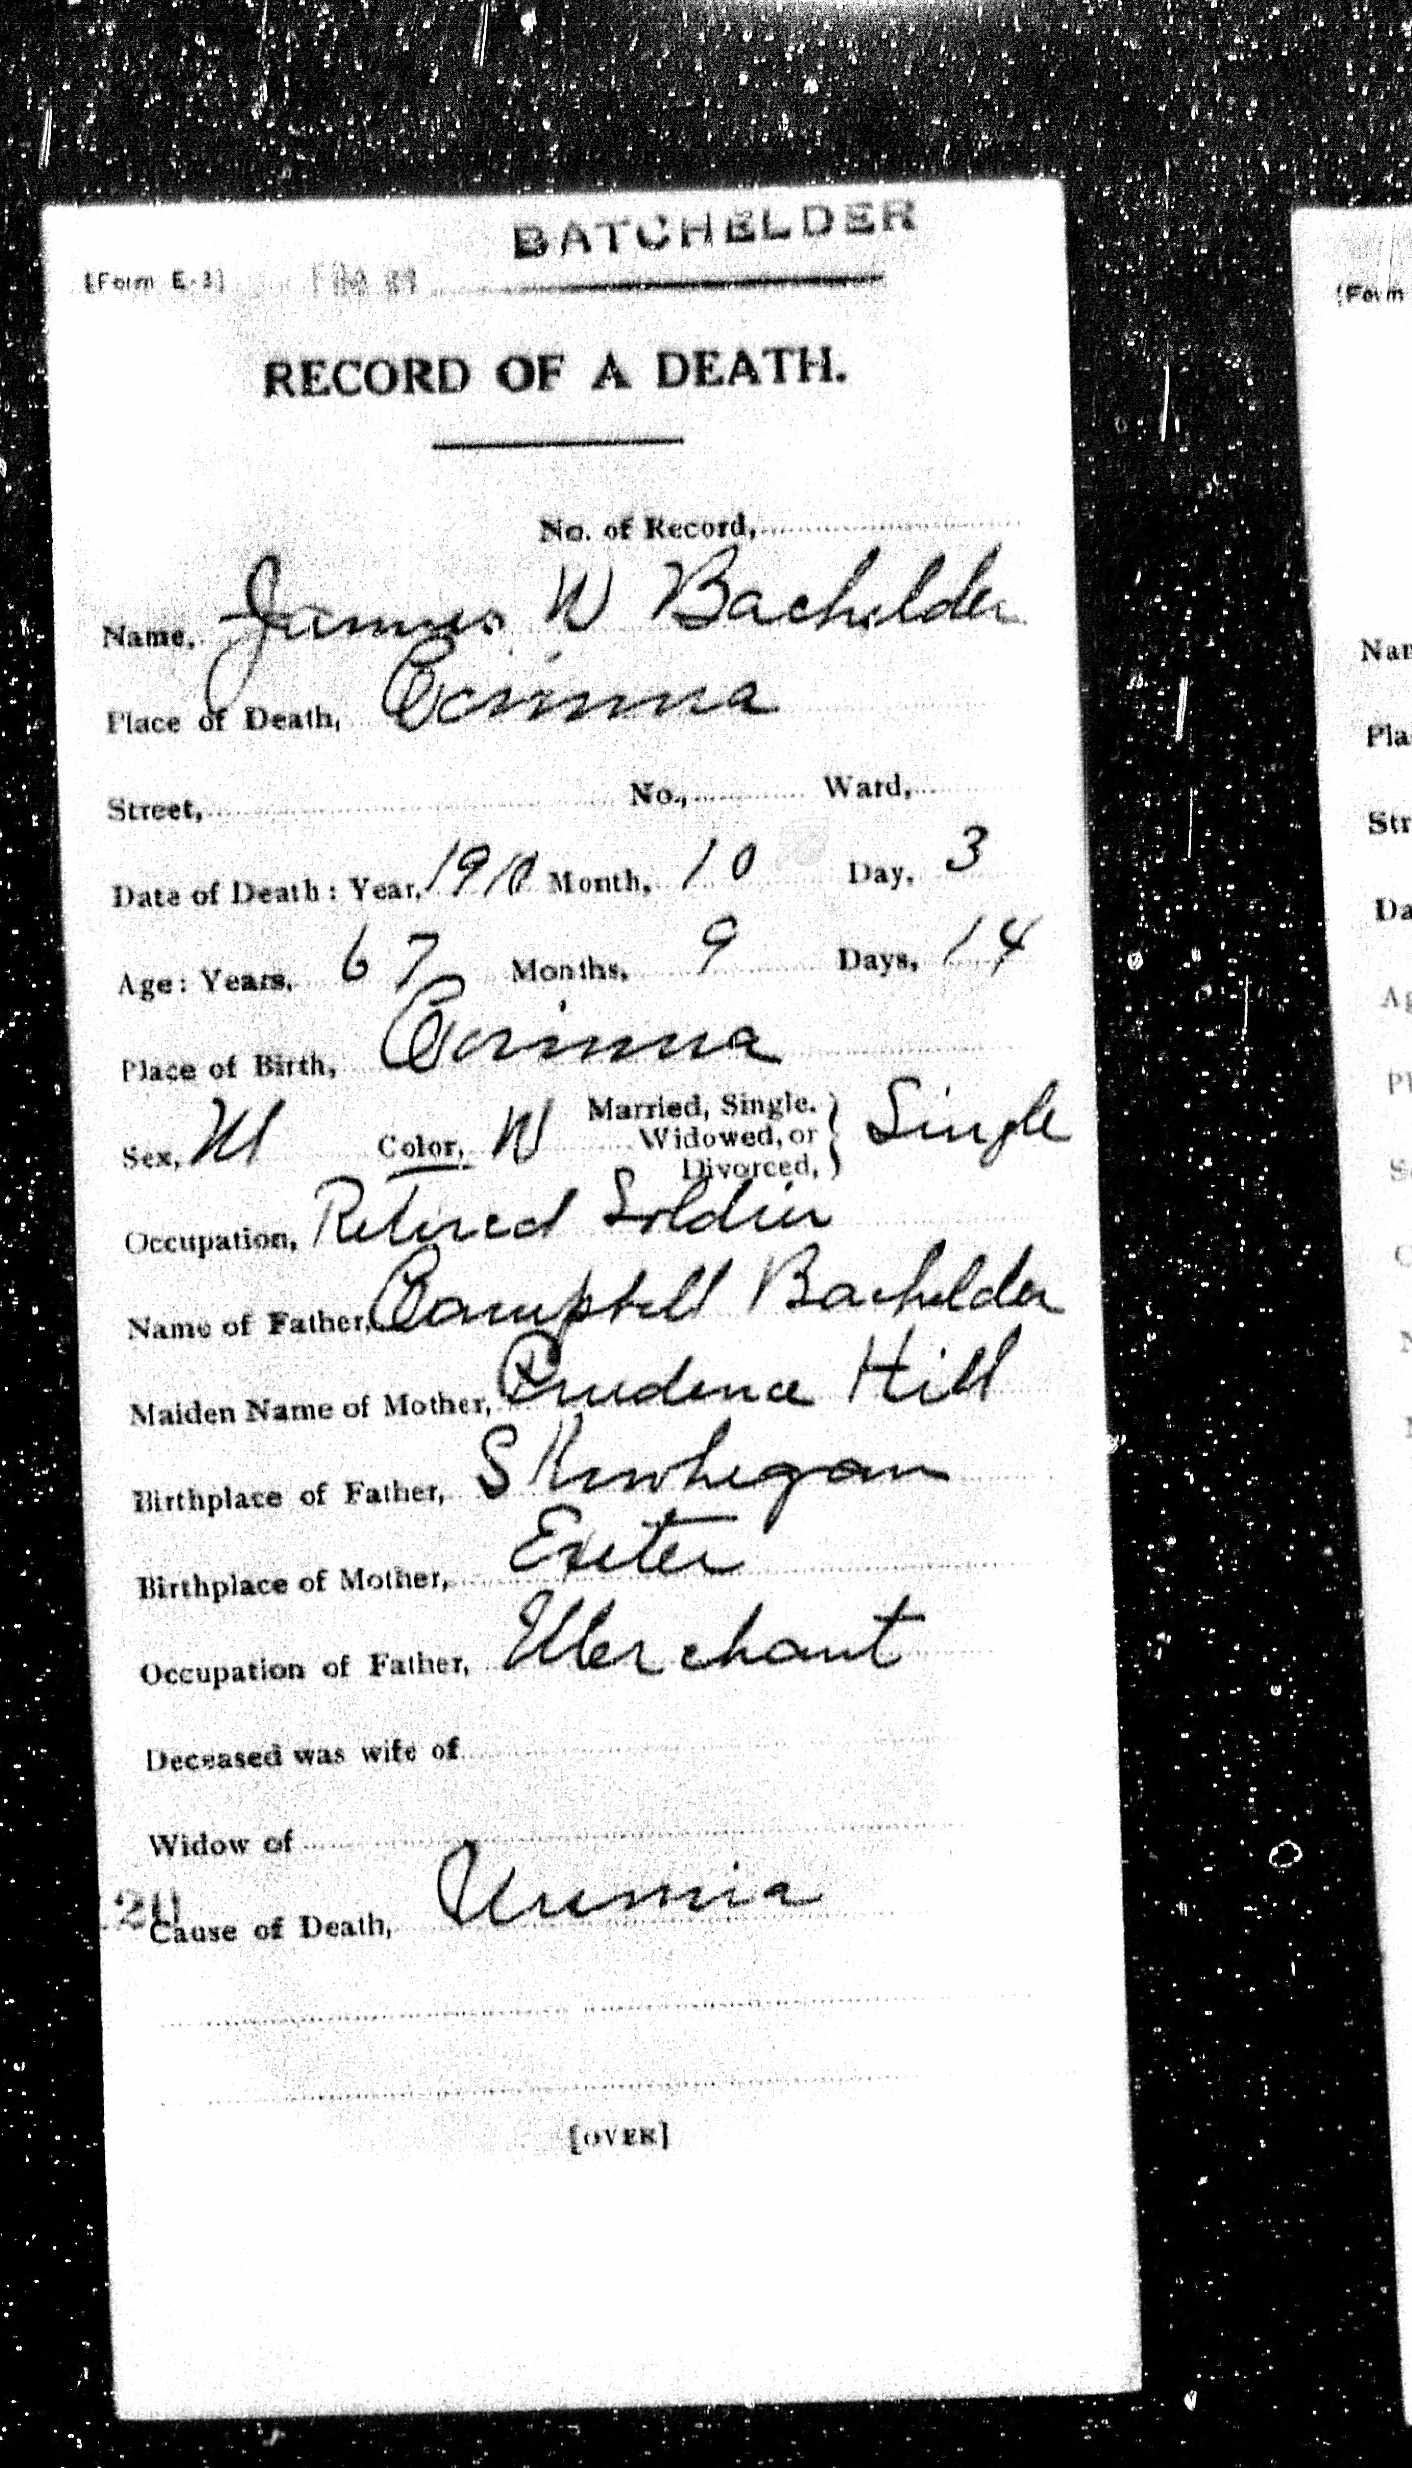 BATCHELDER
[Form E-3]
RECORD OF A DEATH.
No. of Record,
Name, James W Bachelder
Place of Death, Corinna
Street, No., Ward,
Date of Death: Year, 1910 Month, 10 Day, 3
Age: Years, 67 Months, 9 Days, 14
Place of Birth, Corinna
Sex, M Color, W Married, Single. Widowed, or Divorced, } Single
Occupation, Retired Soldier
Name of Father, Campbell Bachelder
Maiden Name of Mother, Prudence Hill
Birthplace of Father, Skowhegan
Birthplace of Mother, Exeter
Occupation of Father, Merchant
Deceased was wife of
Widow of
Cause of Death, Uremia
[OVER]
(Form
Nam
Pla
Str
Da